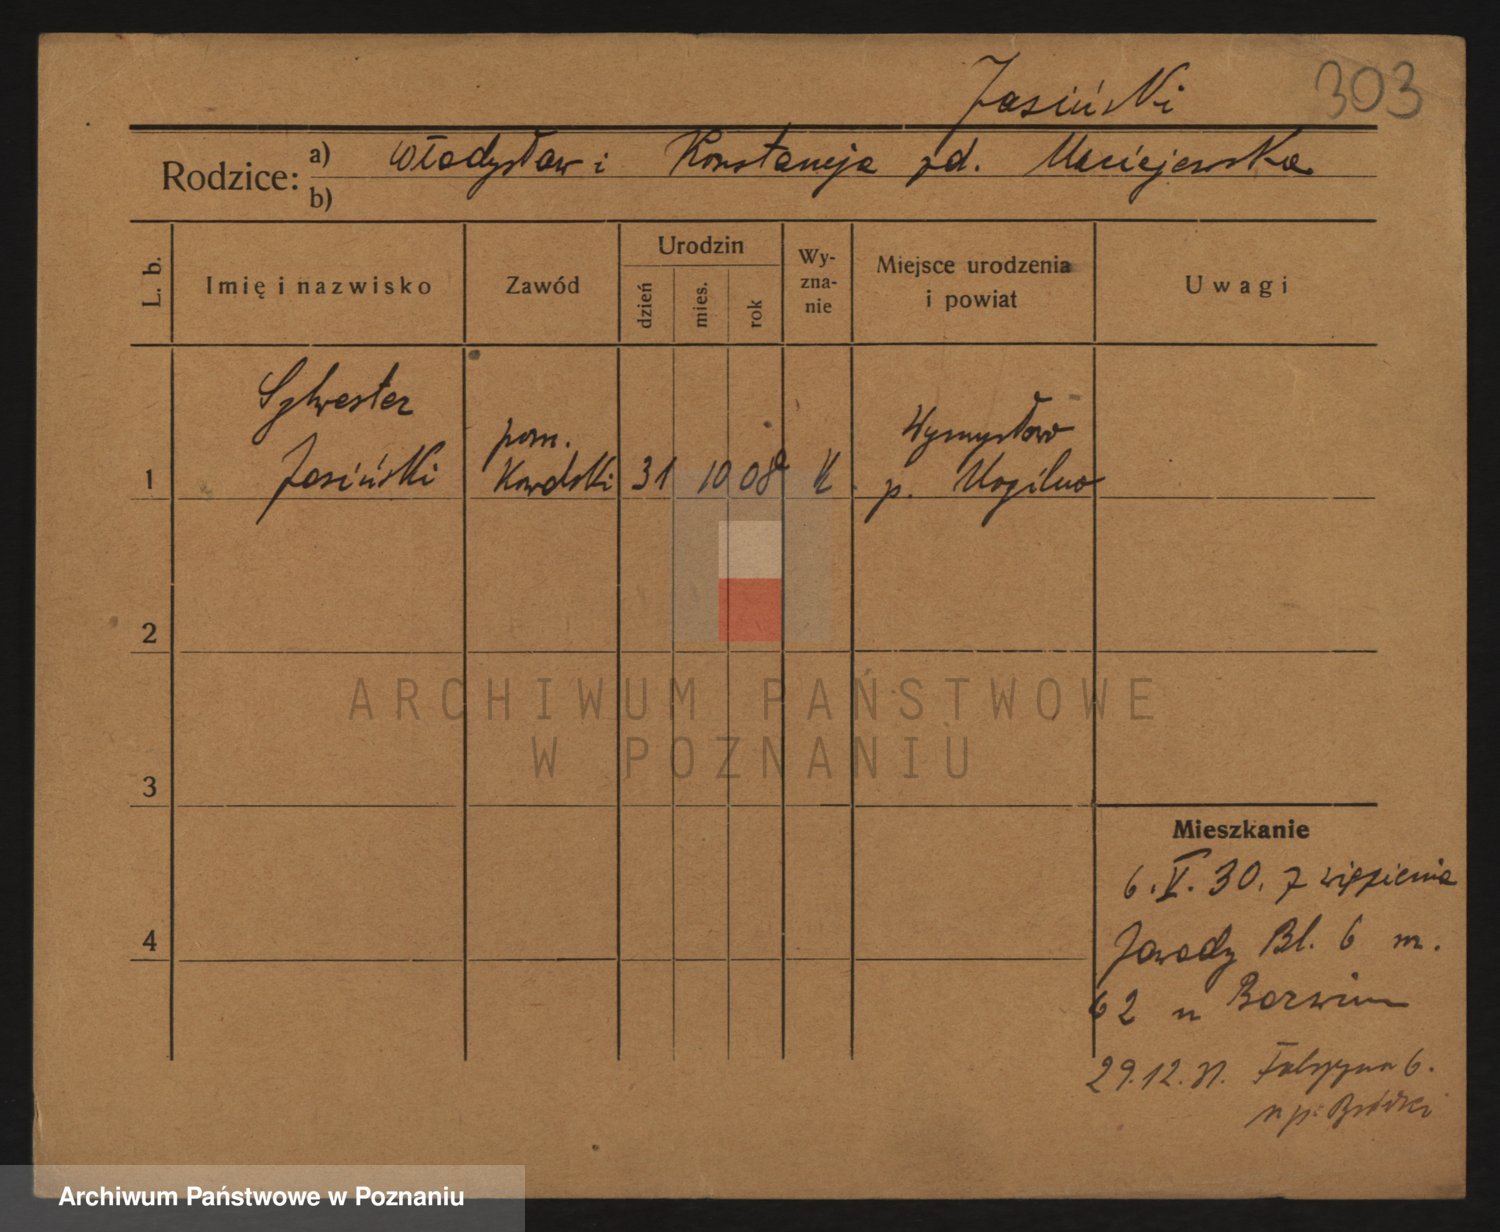 303
Jasiński
Rodzice:
a) Władysław i Konstancja zd. Maciejewska
b)
L. b.
Imię i nazwisko
Zawód
Urodzin
dzień
mies.
rok
Wy-
zna-
nie
Miejsce urodzenia
i powiat
Uwagi
Sylwester
Jasiński
pom.
31 10 08 K
Wymysłowo
p. Mogilno
1
2
3
4
ARCHIWUM PAŃSTWOWE
W POZNANIU
Mieszkanie
6.V.30. z więzienia
Zawady Bl. 6 m.
62 u
29.12.31. 6.
u p.
Archiwum Państwowe w Poznaniu